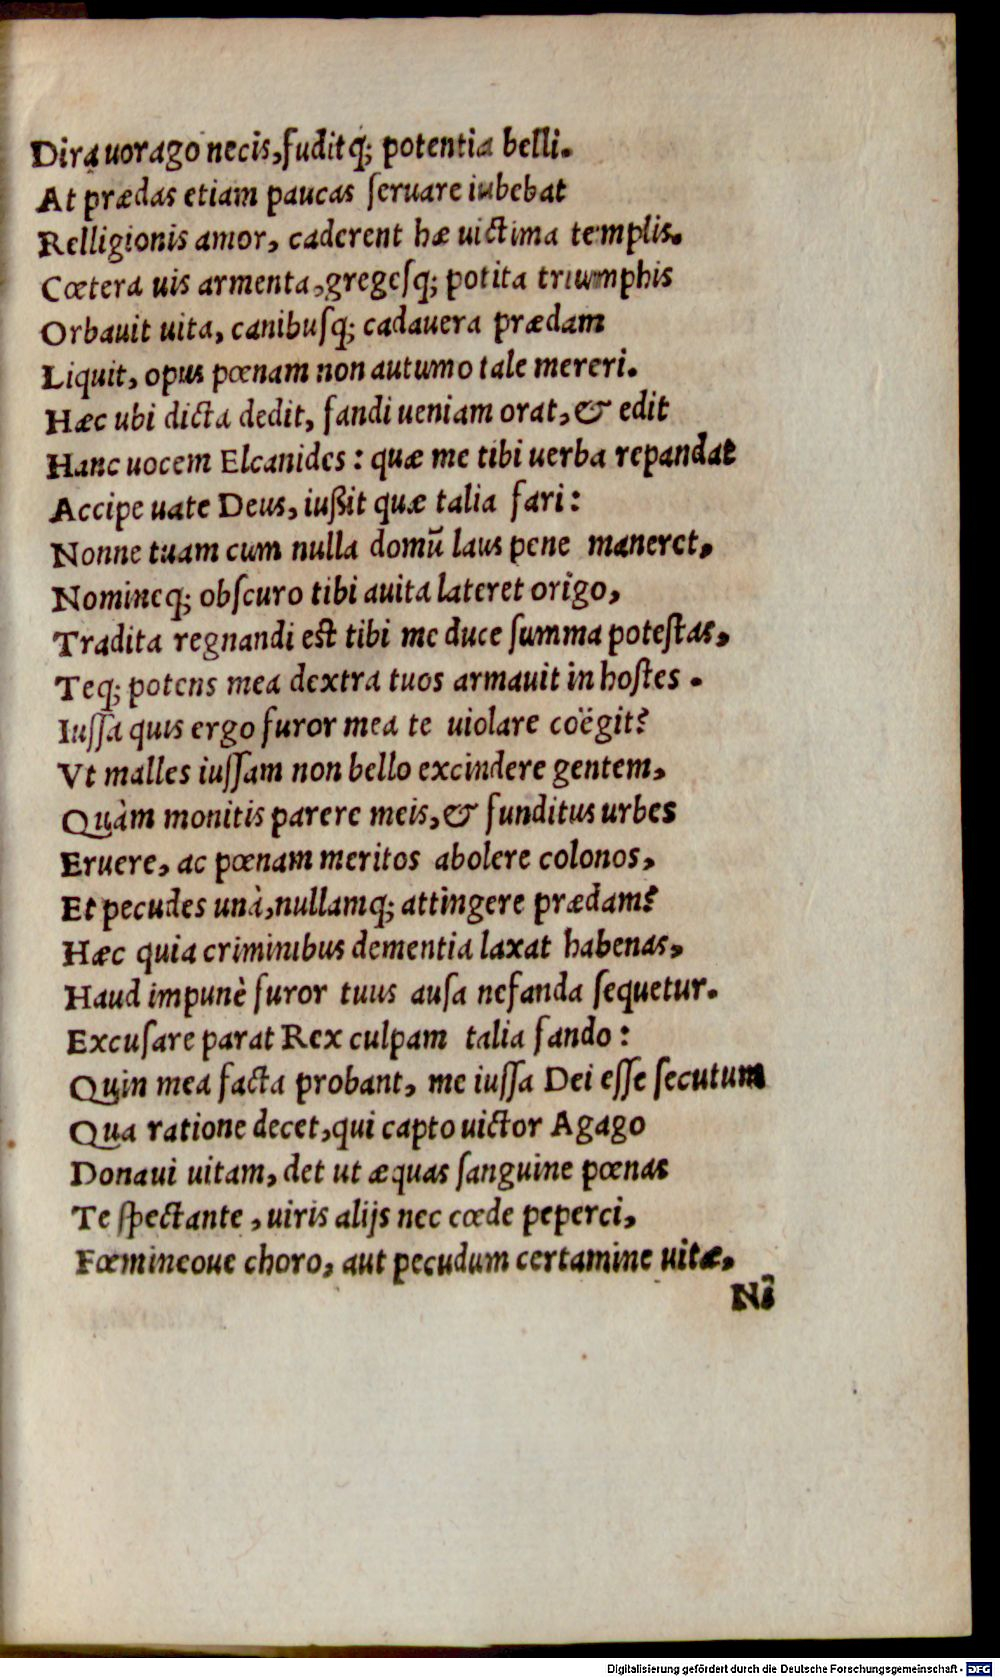 Dira uorago necis, fuditq́; potentia belli.
At prædas etiam paucas ſeruare iubebat
Relligionis amor, caderent hæ uictima templis.
Cœtera uis armenta, gregesq́; potita triumphis
Orbauit uita, canibusq́; cadauera prædam
Liquit, opus pœnam non autumo tale mereri.
Hæc ubi dicta dedit, fandi ueniam orat, & edit
Hanc uocem Elcanides: quæ me tibi uerba repandat
Accipe uate Deus, iußit quæ talia fari:
Nonne tuam cum nulla domũ laus pene maneret,
Nomineq́; obſcuro tibi auita lateret origo,
Tradita regnandi eſt tibi me duce ſumma poteſtas,
Teq́; potens mea dextra tuos armauit in hoſtes.
Iuſſa quis ergo furor mea te uiolare coëgit?
Vt malles iuſſam non bello excindere gentem,
Quàm monitis parere meis, & funditus urbes
Eruere, ac pœnam meritos abolere colonos,
Et pecudes unà, nullamq́; attingere prædam?
Hæc quia criminibus dementia laxat habenas,
Haud impunè furor tuus auſa nefanda ſequetur.
Excuſare parat Rex culpam talia fando:
Quin mea facta probant, me iuſſa Dei eſſe ſecutum
Qua ratione decet, qui capto uictor Agago
Donaui uitam, det ut æquas ſanguine pœnas
Te ſpectante, uiris alijs nec cœde peperci,
Fœmineoue choro, aut pecudum certamine uitæ,
Nĩ
Digitalisierung gefördert durch die Deutsche Forschungsgemeinschaft - DFG